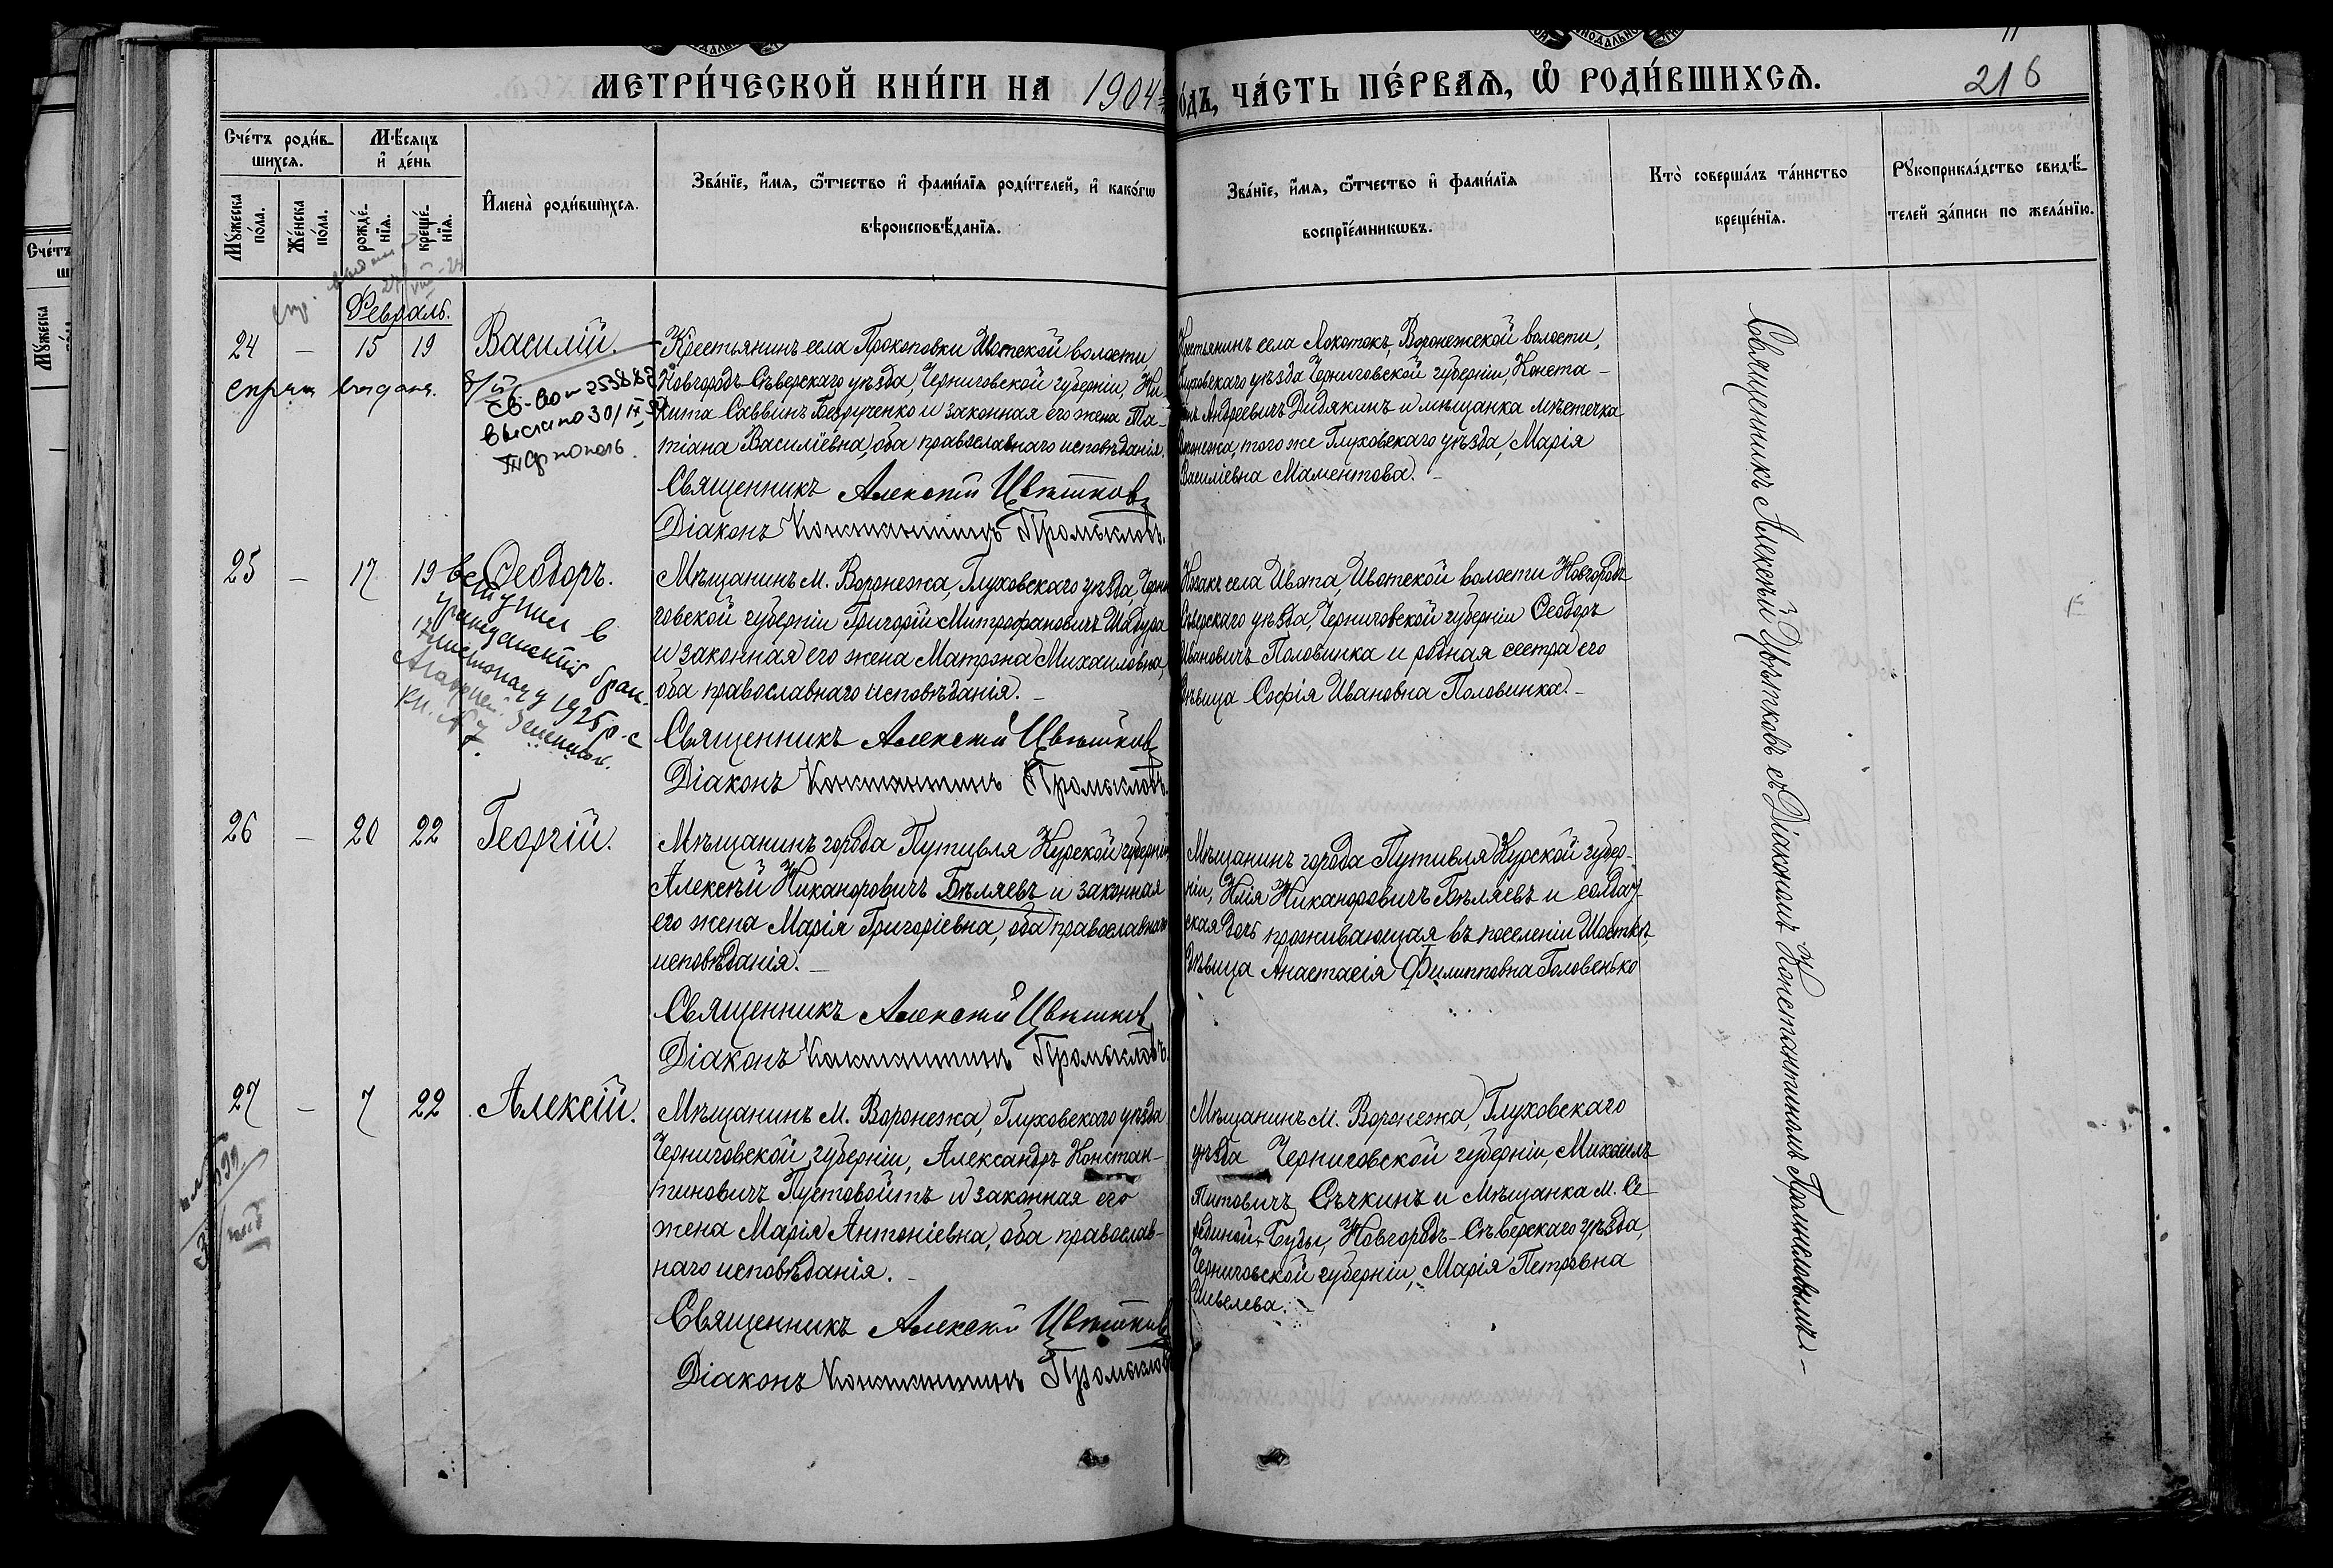 МЕТРИ́ЧЕСКОЙ КНИ́ГИ НА 1904 го́дъ, ЧА́СТЬ ПЕ́РВАѦ, Ѽ РОДИ́ВШИХСѦ.
216
Сче́тъ роди́в-
шихсѧ.
Мѣ́сѧцъ
и҆ де́нь
Мꙋ́жеска
по́ла.
Же́нска
по́ла.
рожде́-
нїѧ.
креще́-
нїѧ.
И҆мена̀ роди́вшихсѧ.
Зва́нїе, и҆́мѧ, ѻ҆́тчество и҆ фами́лїѧ роди́телей, и҆ како́гѡ
вѣроисповѣ́данїѧ.
Зва́нїе, и҆́мѧ, ѻ҆́тчество и҆ фами́лїѧ
воспрїе́мникѡвъ.
Кто̀ соверша́лъ та́инство
креще́нїѧ.
Рꙋкоприкла́дство свидѣ́-
телей за́писи по жела́нїю.
Февраль.
24 — 15 19 Василій.
Крестьянинъ села Прокоповки Ивотской волости
Новгородъ-Сѣверскаго уѣзда, Черниговской губерніи, Ни-
кита Саввинъ Безрученко и законная его жена Та-
тіана Василіевна, оба православнаго исповѣданія.
Священникъ Алексѣй Цвѣтковъ
Діаконъ Константинъ Промысловъ.
Крестьянинъ села Локотокъ, Воронежской волости,
Глуховскаго уѣзда Черниговской губерніи, Конста-
тинъ Андреевичъ Дидякинъ и мѣщанка мѣстечка
Воронежа, того же Глуховскаго уѣзда, Марія
Василіевна Маментова. –
выдана.
Св-во
выслано 30/IX
25 — 17 19 Ѳеодоръ.
Мѣщанинъ м. Воронежа, Глуховскаго уѣзда, Черни-
говской губерніи Григорій Митрофановичъ Шадура
и законная его жена Матрона Михаиловна,
оба православнаго исповѣданія. –
Священникъ Алексѣй Цвѣтковъ
Діаконъ Константинъ Промысловъ.
Козакъ села Ивота, Ивотской волости Новгородъ-
Сѣверскаго уѣзда, Черниговской губерніи Ѳеодоръ
Ивановичъ Половинка и родная сестра его
дѣвица Софія Ивановна Половинка. –
вступил в
гражданский брак
1925 р. с
кн. № 7
26 — 20 22 Георгій.
Мѣщанинъ города Путивля Курской губерніи
Алексѣй Никаноровичъ Бѣляевъ и законная
его жена Марія Григоріевна, оба православнаго
исповѣданія. –
Священникъ Алексѣй Цвѣтковъ
Діаконъ Константинъ Промысловъ.
Мѣщанинъ города Путивля Курской губер-
ніи, Илія Никаноровичъ Бѣляевъ и солдат-
ская дочь проживающая въ поселеніи Шосткѣ,
дѣвица Анастасія Филипповна Головенько
27 — 7 22 Алексій.
Мѣщанинъ м. Воронежа, Глуховскаго уѣзда
Черниговской губерніи, Александръ Констан-
тиновичъ Пустовойтъ и законная его
жена Марія Антоніевна, оба православ-
наго исповѣданія. –
Священникъ Алексѣй Цвѣтковъ
Діаконъ Константинъ Промысловъ
Мѣщанинъ м. Воронежа, Глуховскаго
уѣзда Черниговской губерніи, Михаилъ
Титовичъ Сѣчкинъ и Мѣщанка м. Се-
рединой-Буды, Новгородъ-Сѣверскаго уѣзда,
Черниговской губерніи, Марія Петровна
Шевелева. –
Священникъ Алексѣй Цвѣтковъ съ Діакономъ Константиномъ Промысловымъ –
Сче́тъ
Мꙋ́жеска